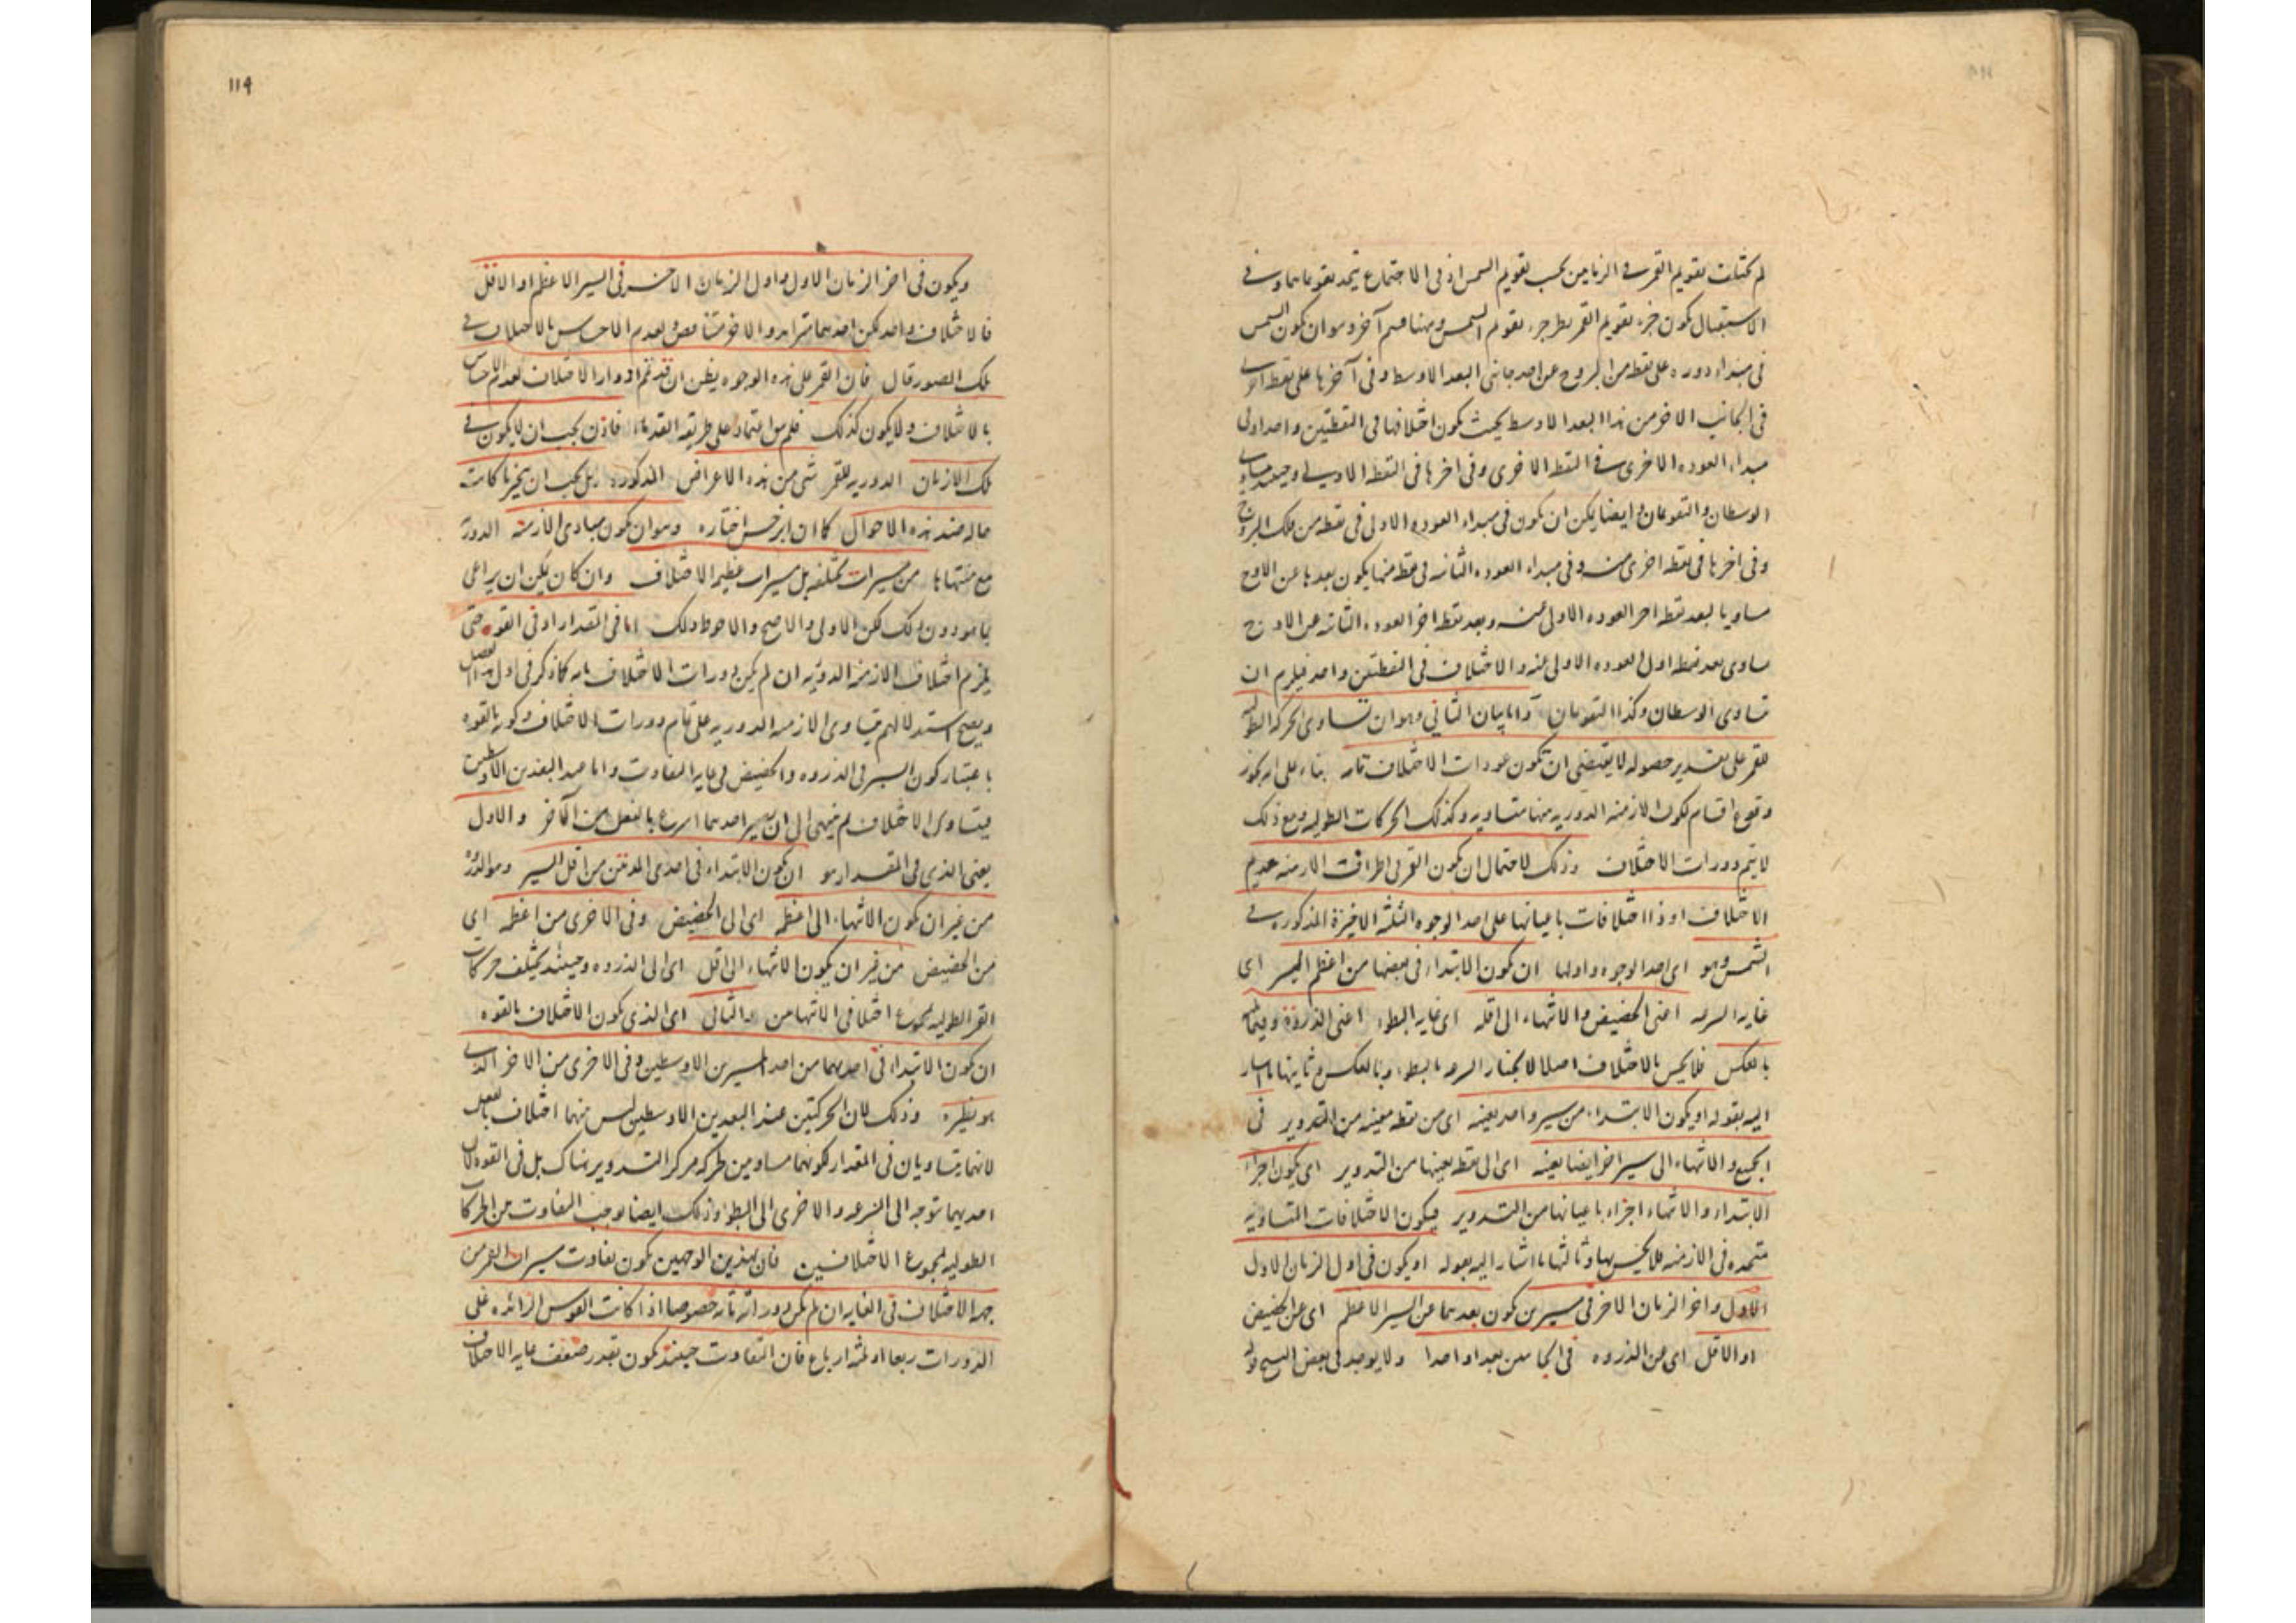 لم يختلف تقويم القمر في الزمانين بحسب تقويم الشمس اذ في الاجتماع يتحد تقويماهما وفي
الاستقبال يكون جزء تقويم القمر نظير جزء تقويم الشمس وههنا قسم آخر وهو ان يكون الشمس
في مبداء دوره على نقطة من البروج عن احد جانبي البعد الاوسط وفي آخرها على نقطة اخرى
في الجانب الاخر من هذا البعد الاوسط بحيث يكون اختلافها في النقطتين واحدا وفي
مبداء العوده الاخرى في النقطة الاخرى وفي اخرها في النقطة الاولى وحينئذ يتساوى
الوسطان والتقويمان وايضا يمكن ان يكون في مبداء العوده الاولى في نقطة من فلك البروج
وفي اخرها في نقطة اخرى منه وفي مبداء العوده الثانية في نقطة منها يكون بعدها عن الاوج
مساويا لبعد نقطة اخر العوده الاولى عنه وبعد نقطة اخر العوده الثانية عن الاوج
يساوى بعد نقطة اول العوده الاولى عنه والاختلاف في النقطتين واحد فيلزم ان
يتساوى الوسطان وكذا التقويمان واما بيان الثاني وهو ان تساوى الحركة الطولية
للقمر على تقدير حصوله لا يقتضي ان يكون عودات الاختلاف تامه بناء على انه يجوز
وقوع اقسام تكون الازمنة الدورية منها متساوية وكذلك الحركات الطوليه ومع ذلك
لا يتم دورات الاختلاف وذلك لاحتمال ان يكون القمر في اطراف الازمنة عديم
الاختلاف او ذا اختلافات باعيانها على احد الوجوه الثلثة الاخيرة المذكورة في
الشمس وهو اى احد الوجوه واولها ان يكون الابتداء في بعضها من اعظم المسير اى
غاية السرعه اعنى الحضيض والانتهاء الى اقله اى غاية البطوء اعنى الذروة وفيما
بالعكس فلا يحس بالاختلاف اصلا لانجبار السرعه بالبطوء وبالعكس وثانيها ما اشار
اليه بقوله او يكون الابتداء من مسير واحد بعينه اى من نقطة معينه من التدوير في
الجميع والانتهاء الى مسير اخر ايضا بعينه اى الى نقطة بعينها من التدوير اى يكون اجزاء
الابتداء والانتهاء اجزاء باعيانها من التدوير فيكون الاختلافات المتساوية
متحده في الازمنة فلا يحس بها وثالثها ما اشار اليه بقوله او يكون في اول الزمان الاول
الاول واخر الزمان الاخر في مسيرين يكون بعدهما عن المسير الاعظم اى عن الحضيض
او الاقل اى عن الذروه في الجانبين بعدا واحدا ولا يوجد في بعض النسخ
١١٩
ويكون في اخر الزمان الاول واول الزمان الاخر في المسير الاعظم او الاقل
فالاختلاف واحد لكن احدهما متزايد والاخر متناقص ولعدم الاحساس بالاختلاف في
تلك الصور قال فان القمر على هذه الوجوه يظن ان قد تم ادوار الاختلاف لعدم الاحساس
بالاختلاف ولا يكون كذلك فلم يبق اعتماد على طريقة القدماء فاذن يجب ان لا يكون في
تلك الازمان الدوريه للقمر شى من هذه الاعراض المذكورة بل يجب ان يتخير ما كانت
حاله ضد هذه الاحوال كما ان ابرخس اختاره وهو ان يكون مبادى الازمنة الدورية
مع منتهاها من مسيرات مختلفه بل مسيرات عظيم الاختلاف وان كان يمكن ان يراعى
ما هو دون ذلك لكن الاولى والاصح والاحوط ذلك اما في المقدار او في القوه حتى
يلزم اختلاف الازمنة الدورية ان لم يكن دورات الاختلاف تامه كما ذكر في اول هذا الفصل
ويصح استدلالهم بتساوى الازمنة الدوريه على تمام دورات الاختلاف وكونه بالقوه
باعتبار كون المسير في الذروه والحضيض في غاية التفاوت واما عند البعدين الاوسطين
فيتساوى الاختلاف لم ينتهى الى ان يصير احدهما اسرع بالفعل من الآخر والاول
يعنى الذى في المقدار هو ان يكون الابتداء في احدى المدتين من اقل المسير وهو الذروة
من غير ان يكون الانتهاء الى اعظمه اى الى الحضيض وفي الاخرى من اعظمه اى
من الحضيض من غير ان يكون الانتهاء الى اقله اى الى الذروه وحينئذ يختلف حركات
القمر الطوليه لمجموع اختلافي الانتهائين والثاني اى الذى يكون الاختلاف بالقوه
ان يكون الابتداء في احدهما من احد المسيرين الاوسطين وفي الاخرى من الاخر الذى
هو نظيره وذلك لان الحركتين عند البعدين الاوسطين ليس منهما اختلاف بالفعل
لانهما يتساويان في المقدار لكونهما مساويين لحركة مركز التدوير هناك بل في القوه لان
احديهما توجه الى السرعه والاخرى الى البطوء وذلك ايضا يوجب التفاوت من الحركات
الطوليه لمجموع الاختلافين فان بهذين الوجهين يكون تفاوت مسيرات القمر من
جهة الاختلاف في الغاية ان لم يكن دوراته تامه خصوصا اذا كانت القوس الزائده على
الدورات ربعا او ثلثة ارباع فان التفاوت حينئذ يكون بقدر ضعف غاية الاختلاف